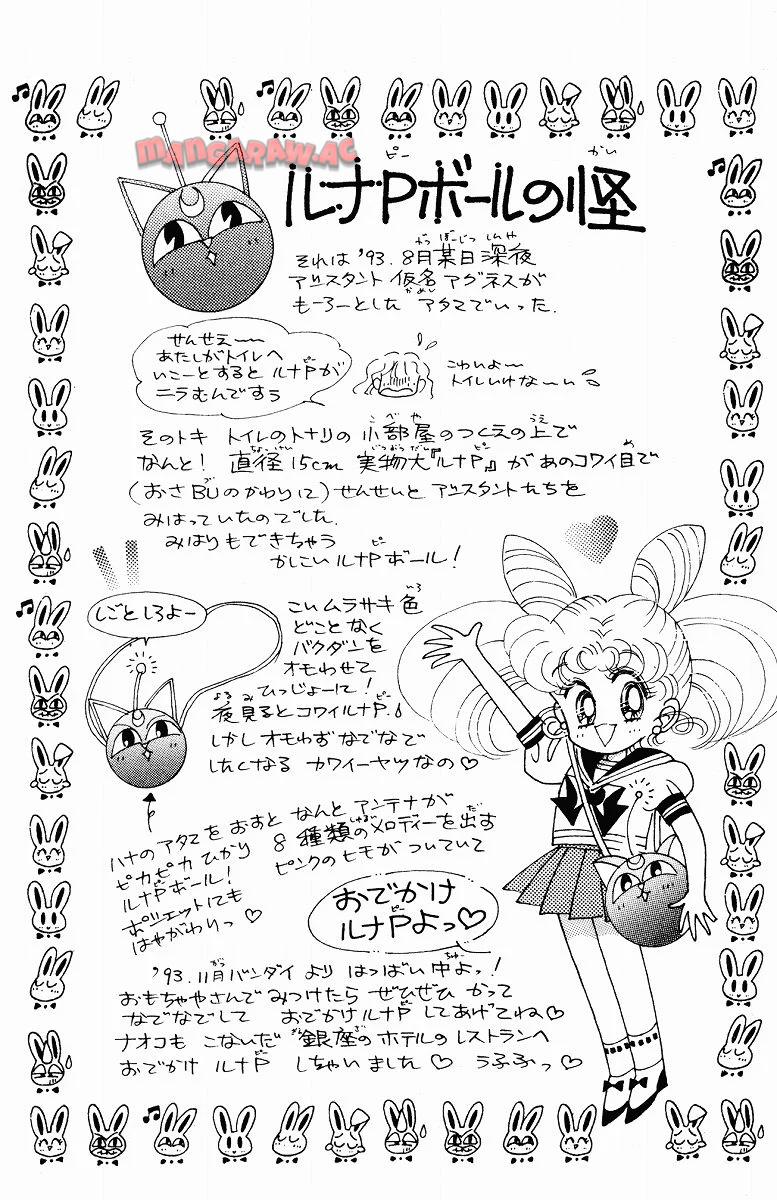 mangaraw.ac
ルナPボールの怪
それは '93. 8月某日 深夜
アシスタント 仮名 アグネスが
もーろーとした アタマでいった.
せんせえ〜
あたしがトイレへ
いこーとすると ルナPが
ニラむんですぅ
こわいよ〜
トイレいけな〜い
そのトキ トイレのトナリの 小部屋のつくえの上で
なんと! 直径15cm 実物大『ルナP』があのコワイ目で
(おさBUのかわりに)せんせいと アシスタントたちを
みはっていたのでした.
みはりもできちゃう
かしこいルナPボール!
しごとしろよー
こいムラサキ色
どことなく
バクダンを
オモわせて
ひっじょーに!
夜見るとコワイルナP.
しかし オモわずなでなで
したくなる カワイーヤツなの♡
ハナのアタマをおすと なんと アンテナが
ピカピカ ひかり 8種類のメロディーを出す
ルナPボール! ピンクのヒモがついていて
ポシェットにも
はやがわりっ♡
おでかけ
ルナPよっ♡
'93. 11月バンダイ より はっばい中よっ!
おもちゃやさんで みつけたら ぜひぜひ かって
なでなでして おでかけルナP してあげてね♡
ナオコも こないだ 銀座のホテルのレストランへ
おでかけ ルナP しちゃいました♡ うふふっ♡